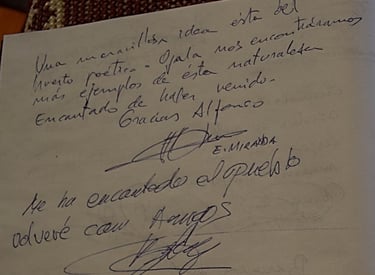 Una maravillosa idea ésta del
huerto poético. Ojala nos encontráramos
más ejemplos de ésta naturaleza
Encantado de haber venido.
Gracias Alfonso
E. MIRANDA
Me ha encantado el
volveré con Amigos